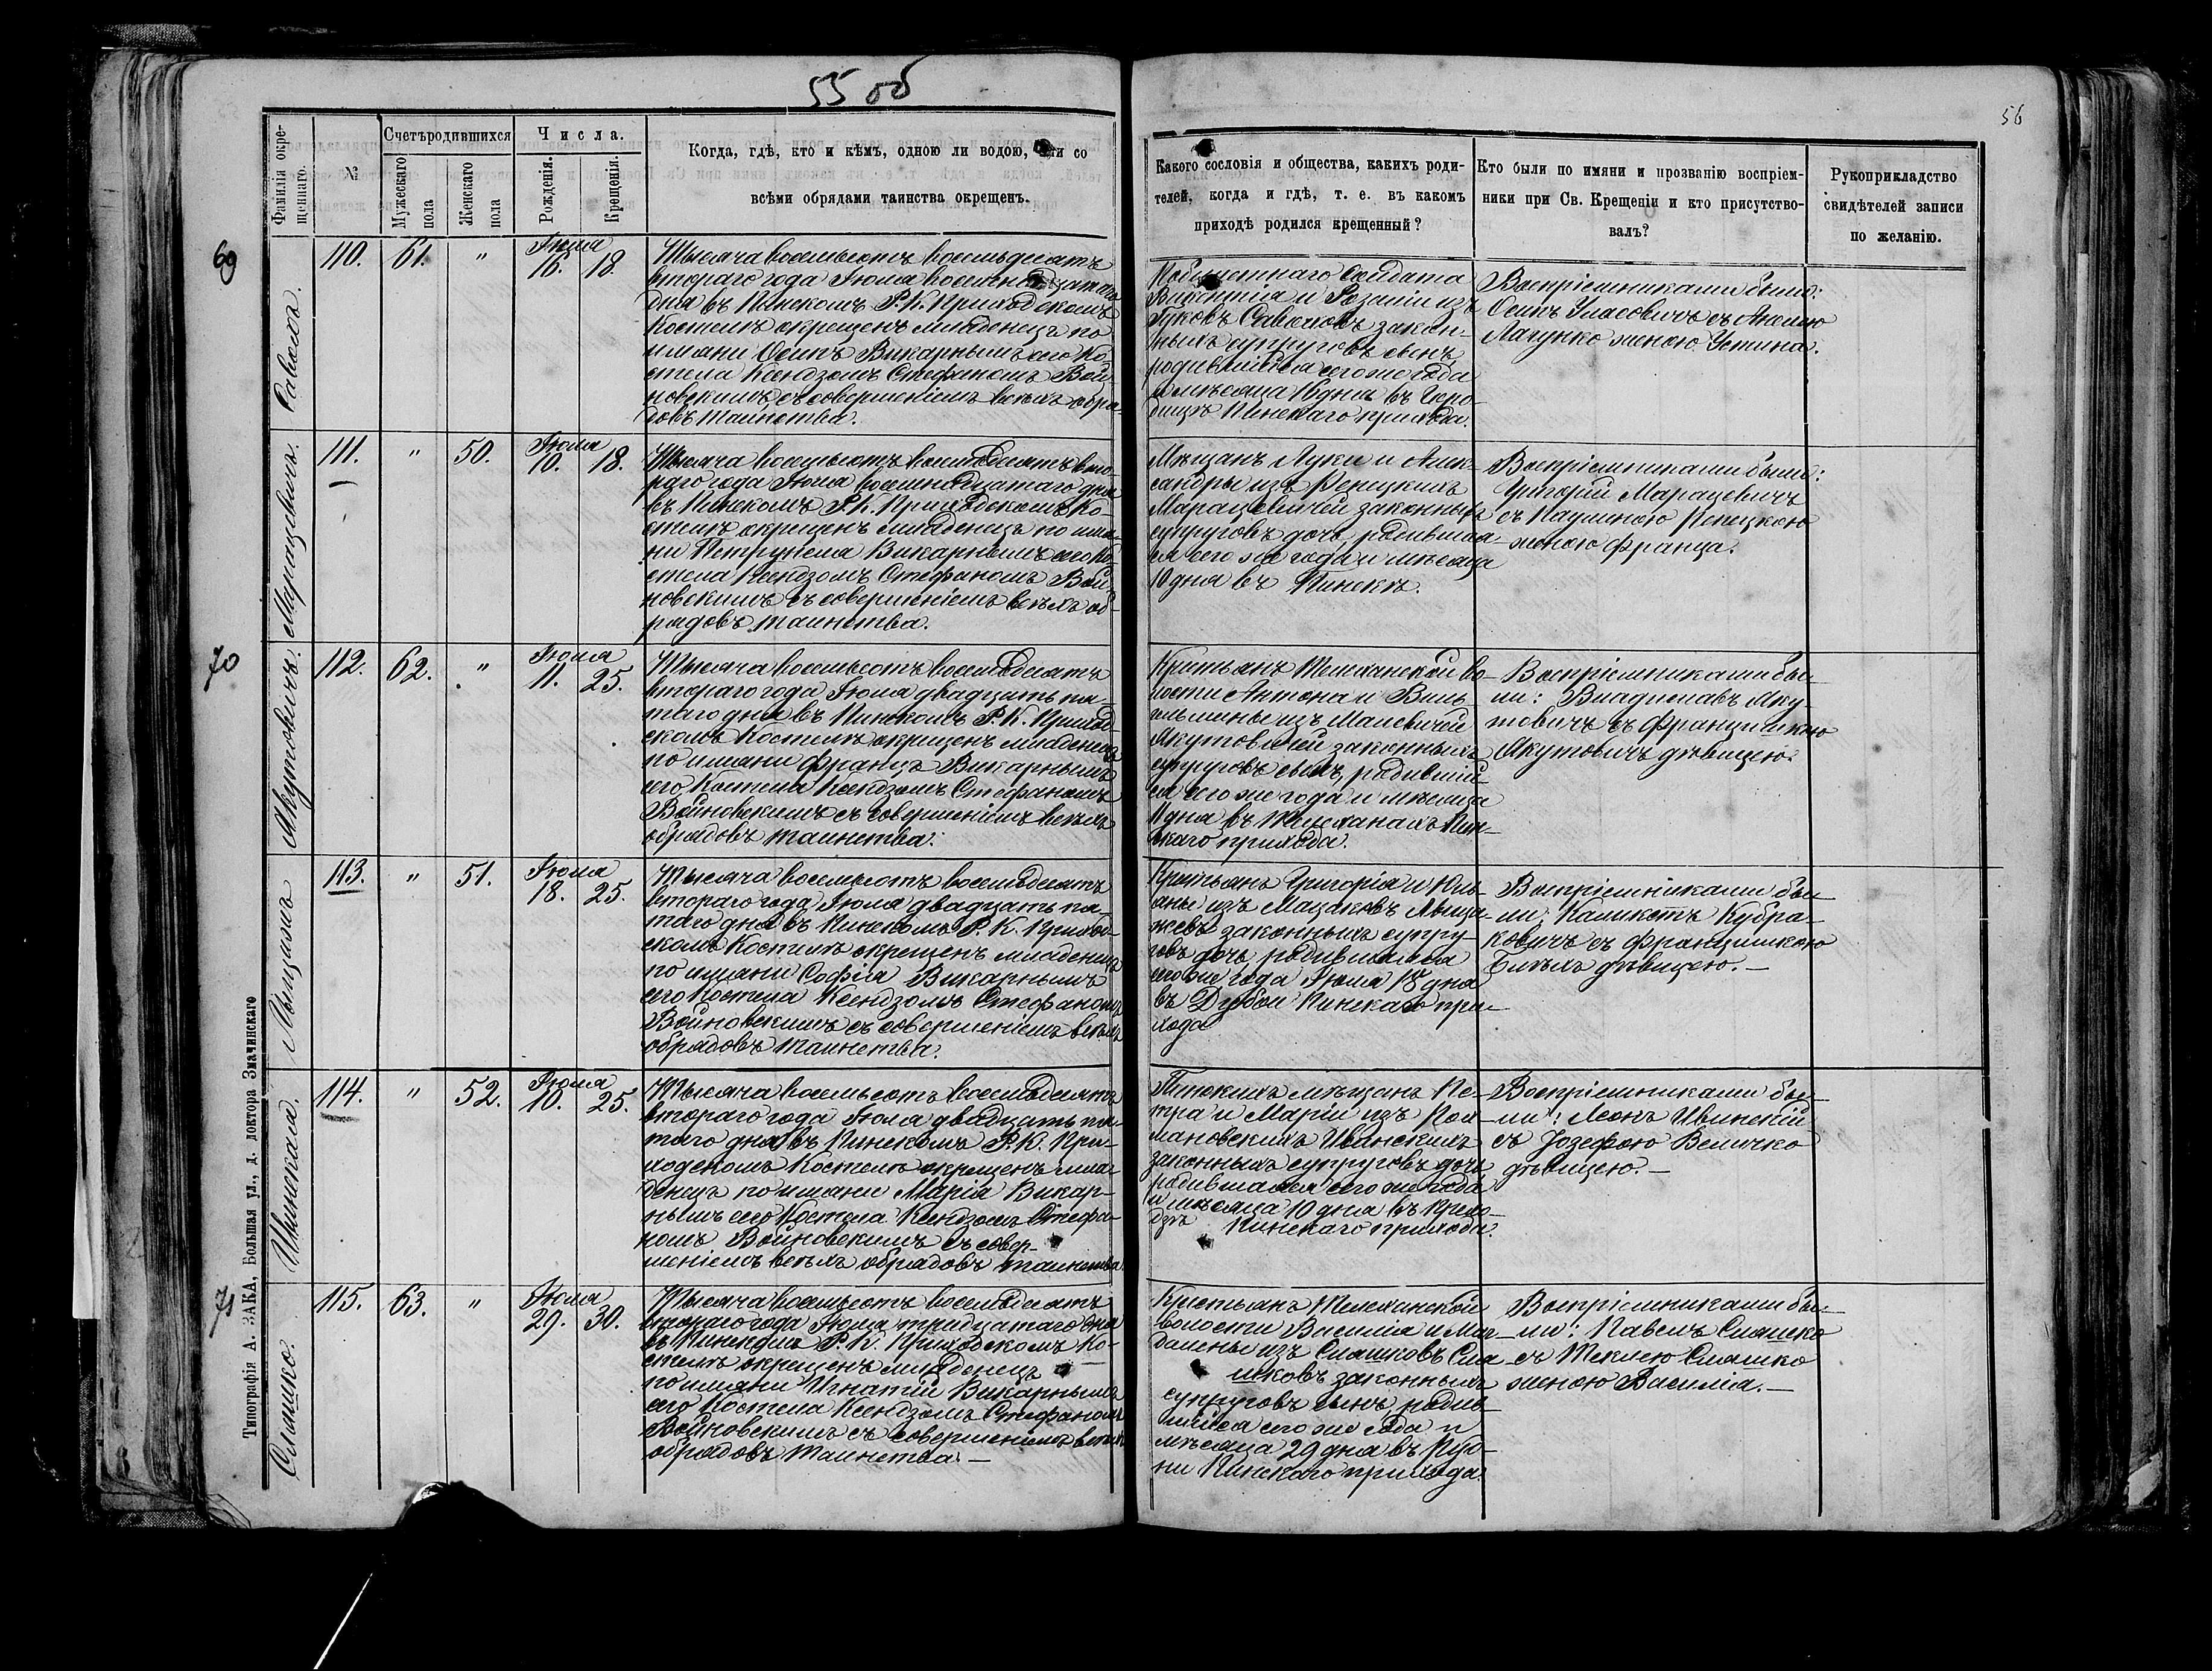 55 об
56
Фамилія окре-
щеннаго.
№
Счетъ родившихся
Мужескаго
пола
Женскаго
пола
Числа.
Рожденія.
Крещенія.
Когда, гдѣ, кто и кѣмъ, одною ли водою, или со
всѣми обрядами таинства окрещенъ.
Какого сословія и общества, какихъ роди-
телей, когда и гдѣ, т. е. въ какомъ
приходѣ родился крещенный?
Кто были по имяни и прозванію воспріем-
ники при Св. Крещеніи и кто присутство-
валъ?
Рукоприкладство
свидѣтелей записи
по желанію.
69
110. 61. "
Іюля
16. 18.
Тысяча восемьсотъ восемьдесятъ
втораго года Іюля восемнадцатаго
дня въ Пинскомъ Р. К. Приходскомъ
Костелѣ окрещенъ младенецъ по
имяни Осипъ Викарнымъ сего Ко-
стела Ксендзомъ Стефаномъ Вой-
новскимъ съ совершеніемъ всѣхъ обря-
довъ таинства.
солдата
Викентія и Розаліи изъ
закон-
ныхъ супруговъ сынъ,
родившійся сего же года
и мѣсяца 16 дня въ Горо-
дищѣ Пинскаго прихода.
Воспріемниками были:
Осипъ съ
женою Устина.
Марацевичъ.
111. " 50.
Іюля
10. 18.
Тысяча восемьсотъ восемьдесятъ вто-
раго года Іюля восемнадцатаго дня
въ Пинскомъ Р. К. Приходскомъ Ко-
стелѣ окрещенъ младенецъ по имя-
ни Петрунеля Викарнымъ сего Ко-
стела Ксендзомъ Стефаномъ Вой-
новскимъ съ совершеніемъ всѣхъ об-
рядовъ таинства.
Мѣщанъ Луки и Алек-
сандры изъ Репецкихъ
Марацевичей законныхъ
супруговъ дочь, родившая-
ся сего же года и мѣсяца
10 дня въ Пинскѣ.
Воспріемниками были:
Григорій Марацевичъ
съ Паулиною
женою Франца.
70
Якутовичъ.
112. 62. "
Іюля
11. 25.
Тысяча восемьсотъ восемьдесятъ
втораго года Іюля двадцать пя-
таго дня въ Пинскомъ Р. К. Приход-
скомъ Костелѣ окрещенъ младенецъ
по имяни Францъ Викарнымъ
сего Костела Ксендзомъ Стефаномъ
Войновскимъ съ совершеніемъ всѣхъ
обрядовъ таинства.
Крестьянъ Телеханской во-
лости Антона и Виль-
гельмины изъ
Якутовичей законныхъ
супруговъ сынъ, родившій-
ся сего же года и мѣсяца
11 дня въ Телеханахъ Пин-
скаго прихода.
Воспріемниками бы-
ли: Владиславъ Яку-
товичъ съ Францишкою
Якутовичъ дѣвицею.
113. " 51.
Іюля
18. 25.
Тысяча восемьсотъ восемьдесятъ
втораго года Іюля двадцать пя-
таго дня въ Пинскомъ Р. К. Приход-
скомъ Костелѣ окрещенъ младенецъ
по имяни Софія Викарнымъ
сего Костела Ксендзомъ Стефаномъ
Войновскимъ съ совершеніемъ всѣхъ
обрядовъ таинства.
Крестьянъ Григорія и Юль-
яны изъ
законныхъ супру-
говъ дочь, родившаяся
сего же года Іюля 18 дня
въ Дубои Пинскаго при-
хода
Воспріемниками бы-
ли: Каликстъ Кубра-
ковичъ съ Францишкою
дѣвицею.—
Ивинская.
114. " 52.
Іюля
10. 25.
Тысяча восемьсотъ восемьдесятъ
втораго года Іюля двадцать пя-
таго дня въ Пинскомъ Р. К. При-
ходскомъ Костелѣ окрещенъ мла-
денецъ по имяни Марія Викар-
нымъ сего Костела Ксендзомъ Стефа-
номъ Войновскимъ съ совер-
шеніемъ всѣхъ обрядовъ таинства.
Пинскихъ мѣщанъ Пе-
тра и Маріи изъ
Ивинскихъ
законныхъ супруговъ дочь
родившаяся сего же года
и мѣсяца 10 дня въ
Пинскаго прихода.
Воспріемниками бы-
ли: Леонъ Ивинскій
съ Юзефою Величко
дѣвицею.—
71
Слашко.
115. 63. "
Іюля
29. 30.
Тысяча восемьсотъ восемьдесятъ
втораго года Іюля тридцатаго дня
въ Пинскомъ Р. К. Приходскомъ Ко-
стелѣ окрещенъ младенецъ
по имяни Игнатій Викарнымъ
сего Костела Ксендзомъ Стефаномъ
Войновскимъ съ совершеніемъ всѣхъ
обрядовъ таинства.—
Крестьянъ Телеханской
волости Василія и Маг-
далены изъ Слашковъ Сла-
шковъ законныхъ
супруговъ сынъ, родив-
шійся сего же года и
мѣсяца 29 дня въ
Пинскаго прихода.
Воспріемниками бы-
ли: Павелъ Слашко
съ Теклею Слашко
женою Василія.—
Типографія А. ЗАКА, Большая ул., д. доктора Значинскаго